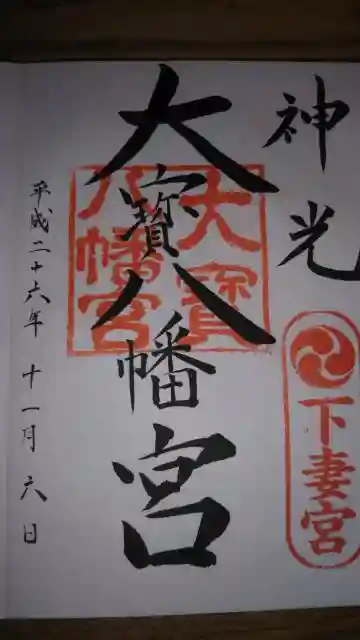 神光
下妻宮
大寳八幡宮
大寳八幡宮
平成二十六年十一月六日